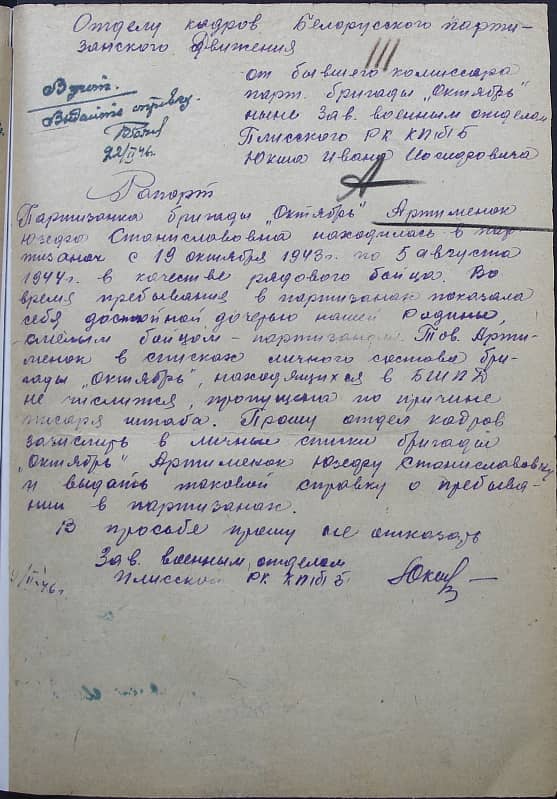 Отделу кадров Белорусского парти-
занского движения
III
от бывшего комиссара
парт. бригады „Октябрь"
ныне Зав. военным отделом
Плисского РК КП(б)Б
Юкша Ивана Иосифовича
В учет.
Выдать справку.
22/II 46г.
А
Рапорт
Партизанка бригады „Октябрь" Артименок
Юзефа Станиславовна находилась в пар-
тизанах с 19 октября 1943г. по 5 августа
1944г. в качестве рядового бойца. Во
время пребывания в партизанах показала
себя достойной дочерью нашей Родины,
смелым бойцом – партизаном. Тов. Арти-
менок в списках личного состава бри-
гады „Октябрь", находящихся в БШПД
не числится, пропущена по причине
писаря штаба. Прошу отдел кадров
зачислить в личные списки бригады
„Октябрь" Артименок Юзефу Станиславовну
и выдать таковой справку о пребыва-
нии в партизанах.
В просьбе прошу не отказать
Зав. военным отделом
Плисский РК КП(б)Б
/II-46г.